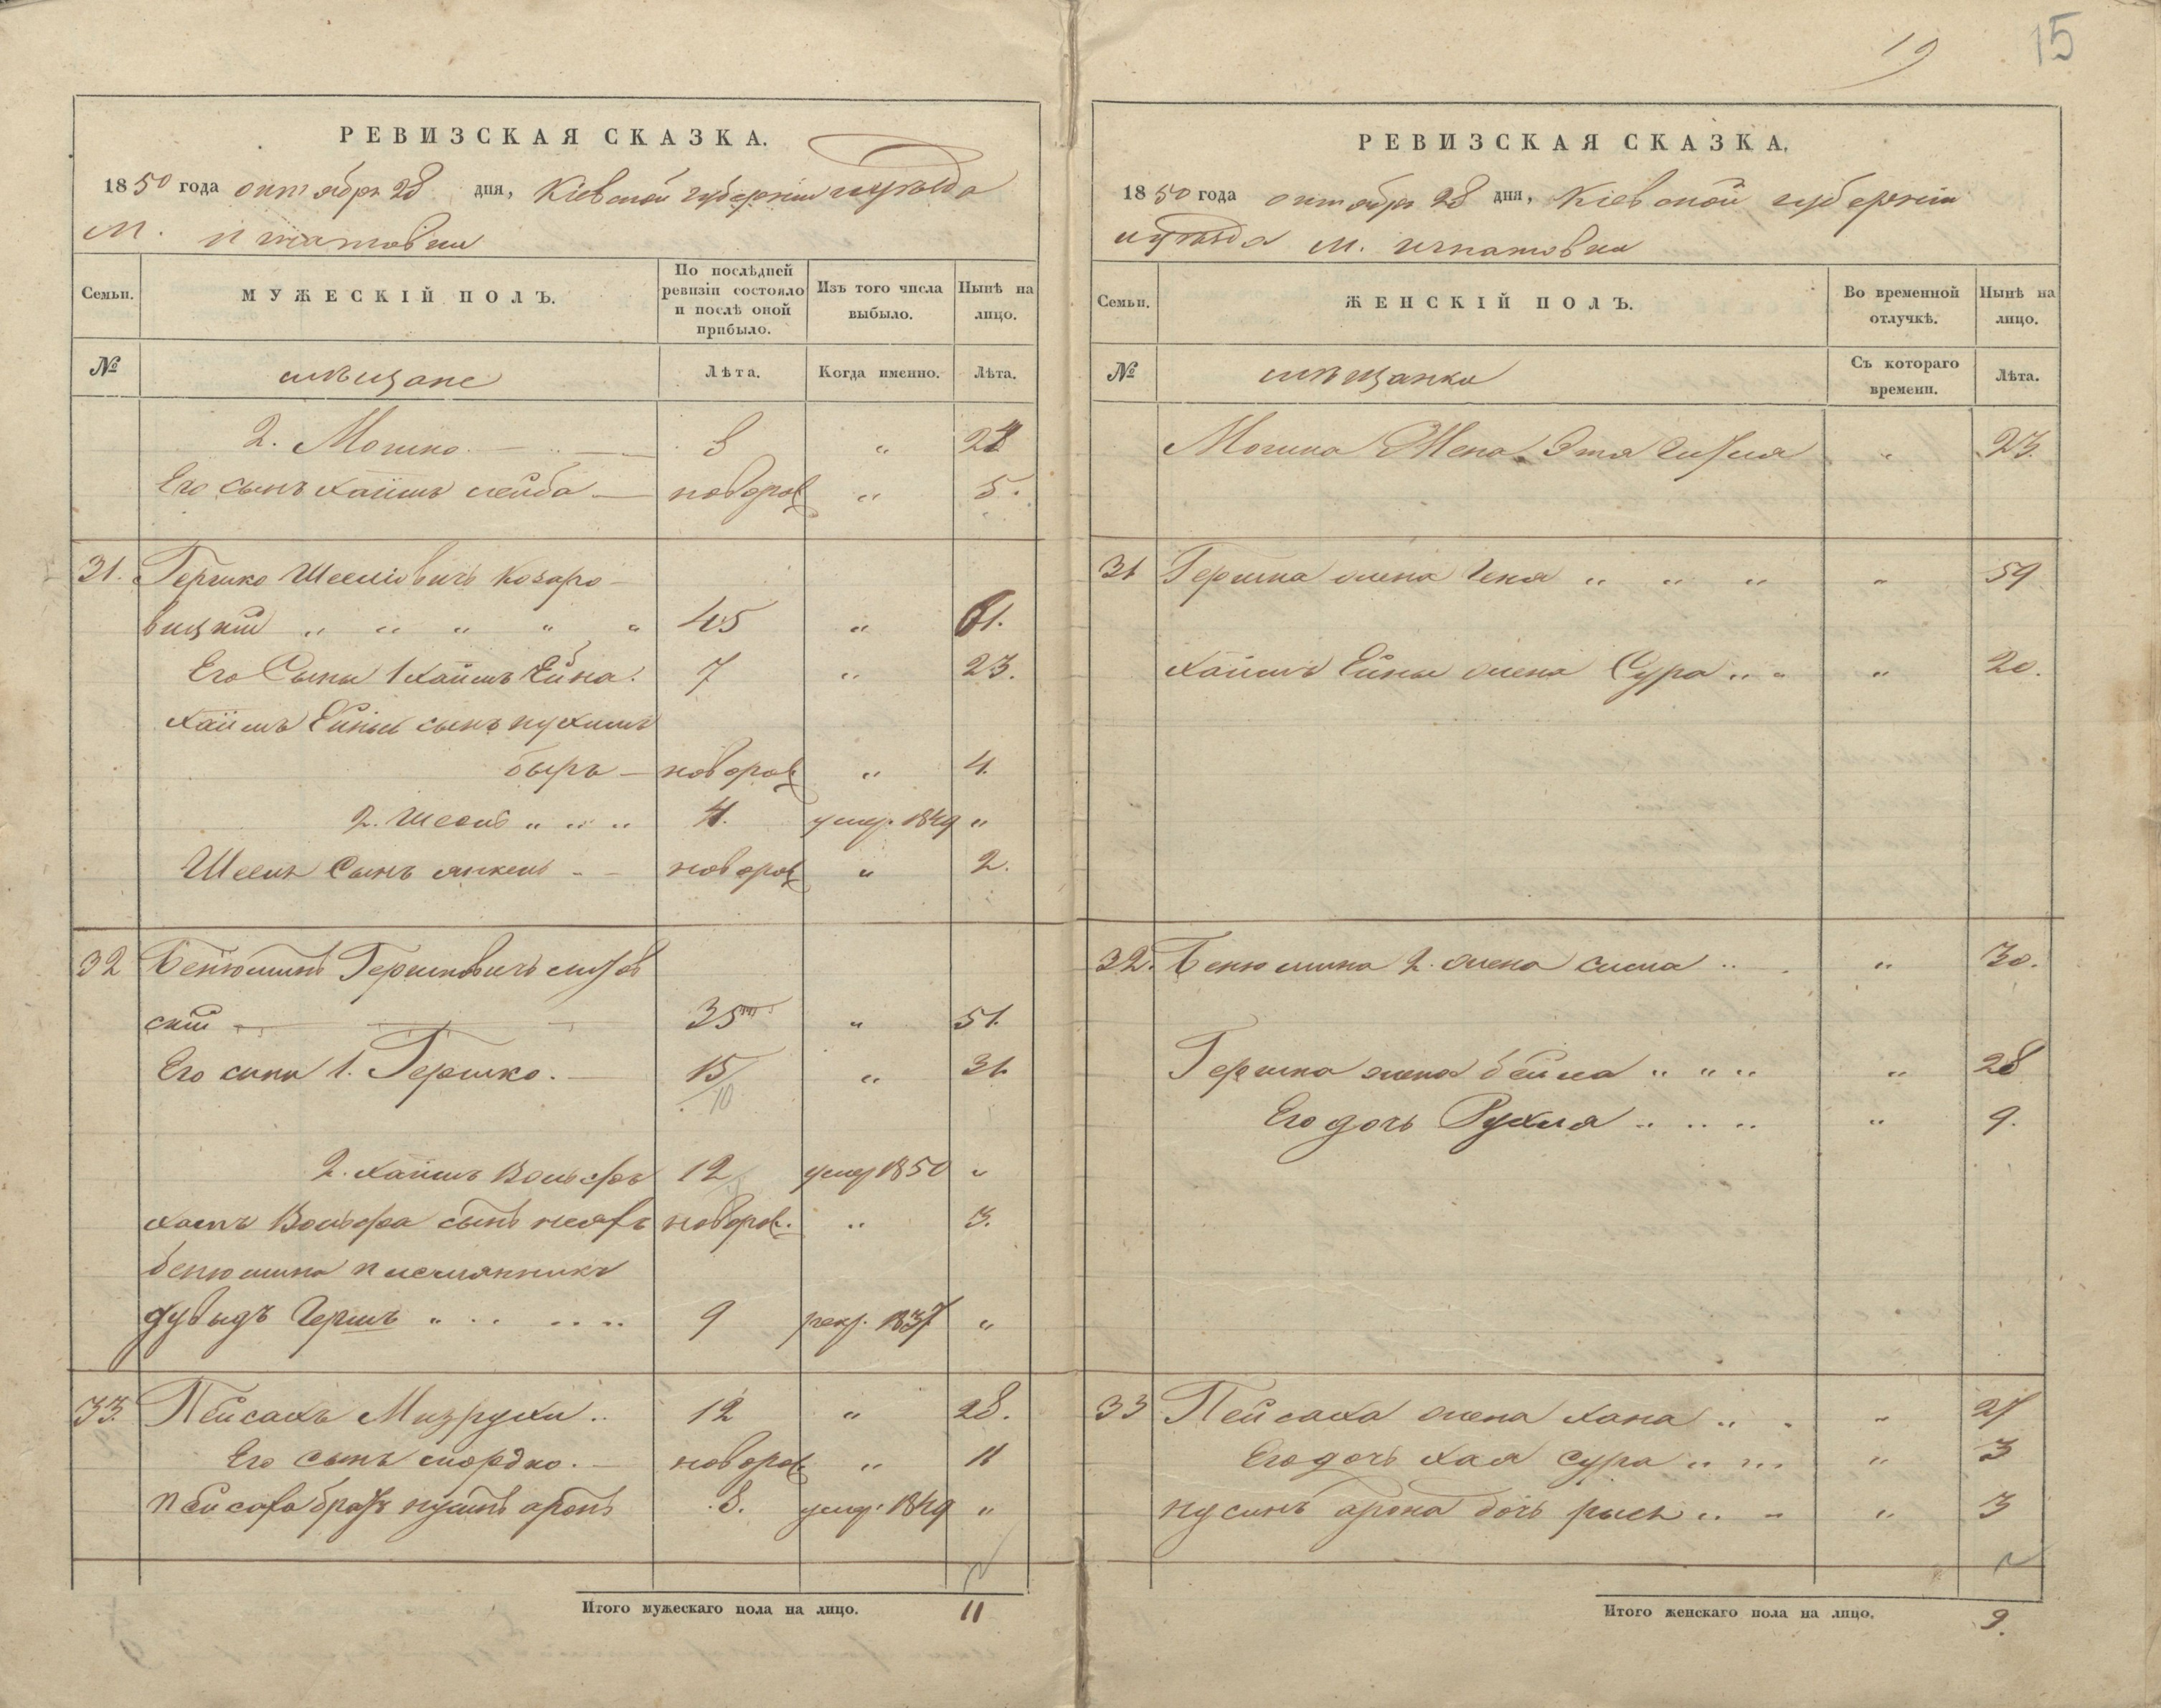 19 15
РЕВИЗСКАЯ СКАЗКА.
1850 года октября 28 дня, Кіевской губерніи и уѣзда
м. Игнатовки
Семьи. МУЖЕСКІЙ ПОЛЪ. По послѣдней ревизіи состояло и послѣ оной прибыло. Изъ того числа выбыло. Нынѣ на лицо.
№ мѣщане Лѣта. Когда именно. Лѣта.
2. Мошко. 8 „ 24
Его сынъ Хаимъ Лейба новорож „ 5.
31. Гершко Шееміовичъ Козаро-
вицкій „ „ „ „ „ 45 „ 61.
Его Сыны 1 Хаимъ Ейна. 7 „ 23.
Хаимъ Ейны сынъ Нухимъ
беръ новорож „ 4.
2. „ „ „ 4. умер. 1849 „
сынъ Янкель новорож „ 2.
32 Бенюминъ Гершковичъ
скій 35 „ 51.
Его сыны 1. Гершко. 15 „ 31.
10
2. Хаимъ Вольфъ 12 умер 1850 „
Хаимъ Вольфа сынъ новорож. „ 3.
бенюмина племянникъ
Дувыдъ Гершъ „ 9 рекр. 1837 „
33. Пейсахъ Мизрухи 12 „ 28.
Его сынъ Мордко. новорож. „ 11
Пейсаха братъ Нусинъ Аронъ 8. умер. 1849 „
Итого мужескаго пола на лицо. 11
РЕВИЗСКАЯ СКАЗКА.
1850 года октября 28 дня, Кіевской губерніи
и уѣзда м. Игнатовки
Семьи. ЖЕНСКІЙ ПОЛЪ. Во временной отлучкѣ. Нынѣ на лицо.
№ мѣщанки Съ котораго времени. Лѣта.
Мошка Жена Эта „ 23.
31 Гершка жена „ „ „ „ 59
Хаимъ Ейны жена Сура „ „ „ 20.
32. Бенюмина 2. жена Сима „ „ 30.
Гершка жена Бейла „ „ „ „ 28
Его дочь Рухля „ „ „ „ 9.
33 Пейсаха жена Хана „ „ 27
Его дочь Хая Сура „ „ „ 3
Нусинъ Арона дочь Рися „ „ „ 3
Итого женскаго пола на лицо. 9.